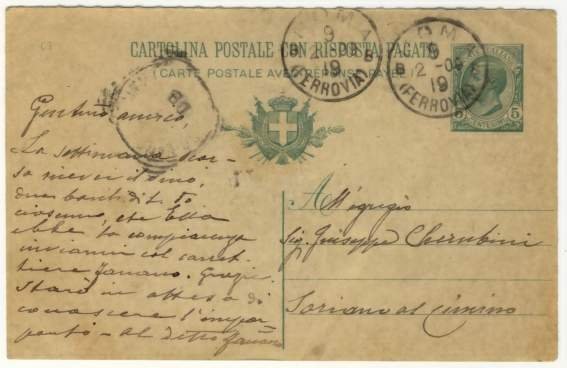 CARTOLINA POSTALE CON RISPOSTA PAGATA
(CARTE POSTALE AVEC RÉPONSE PAYÉE)
ROMA
9
2-09
19
(FERROVIA)
ROMA
9
B 2-09
19
(FERROVIA)
5
Gentmo amico,
La settimana scor-
sa ricevei il vino,
due barili di L. 50
ciascuno, che Ella
ebbe la compiacenza
inviarmi col carret-
tiere Fanano. Grazie.
Starò in attesa di
conoscere l'impor
All'egregio
Sig. Giuseppe Cherubini
Soriano al Cimino